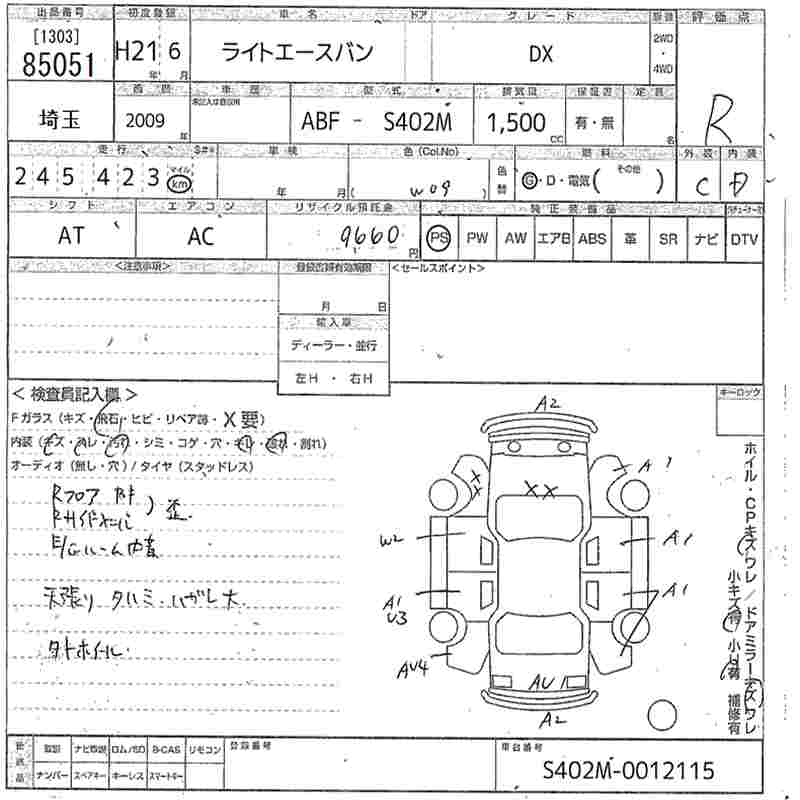 出品番号 初度登録 車名 ドア グレード 評価点
[1303]
85051 H21 6 ライトエースバン DX 2WD・4WD R
年 月
埼玉 2009 年 車歴 型式 ABF - S402M 排気量 1,500 CC 保証書 有・無 定員 名
走行 車検 色(Col.No) 色替 燃料 外装 内装
245 423 マイル km 年 月 ( W09 ) G・D・電気( その他 ) C D
シフト エアコン リサイクル預託金 純正装備品
AT AC 9660 円 PS PW AW エアB ABS 革 SR ナビ DTV
<注意事項> <セールスポイント>
月 日
輸入車
ディーラー・並行
左H ・ 右H
< 検査員記入欄 > キーロック
Fガラス (キズ・飛石・ヒビ・リペア跡・X要)
内装 (キズ・ ・シミ・コゲ・穴・ ・割れ)
オーディオ (無し・穴) / タイヤ (スタッドレス)
Rフロア
歪
天張り タルミ・ハガレ大
タトホイール
A2
A1
XX
XX
W2 A1
A1 A1
U3
AU4
AU1
A2
ホイル・CPキズワレ / ドアミラーキズワレ
小キズ有 小凹有 補修有
取説 ナビ取説 ロム/SD B-CAS リモコン 登録番号 車台番号
ナンバー スペアキー キーレス スマートキー S402M-0012115